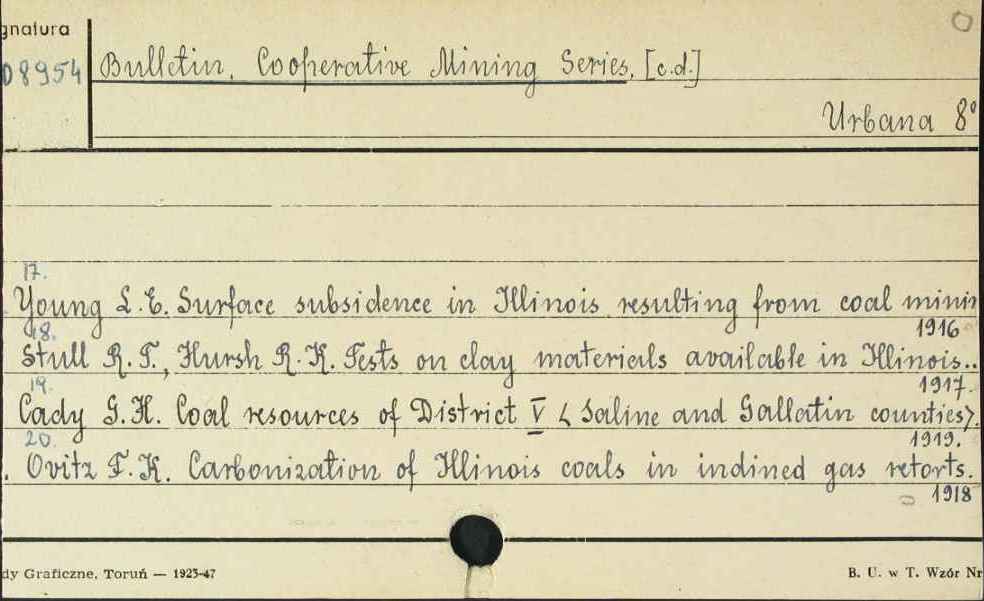 gnatura
08954 Bulletin, Cooperative Mining Series, [c.d.]
Urbana 8°
17.
Young L. E. Surface subsidence in Illinois resulting from coal minin
1916
18.
Stull R. T., Hursh R. K. Tests on clay materials available in Illinois..
1917.
19.
Cady G. H. Coal resources of District V < Saline and Gallatin counties>.
1919.
20.
. Ovitz F. K. Carbonization of Illinois coals in indined gas retorts.
1918
dy Graficzne, Toruń — 1923-47
B. U. w T. Wzór Nr